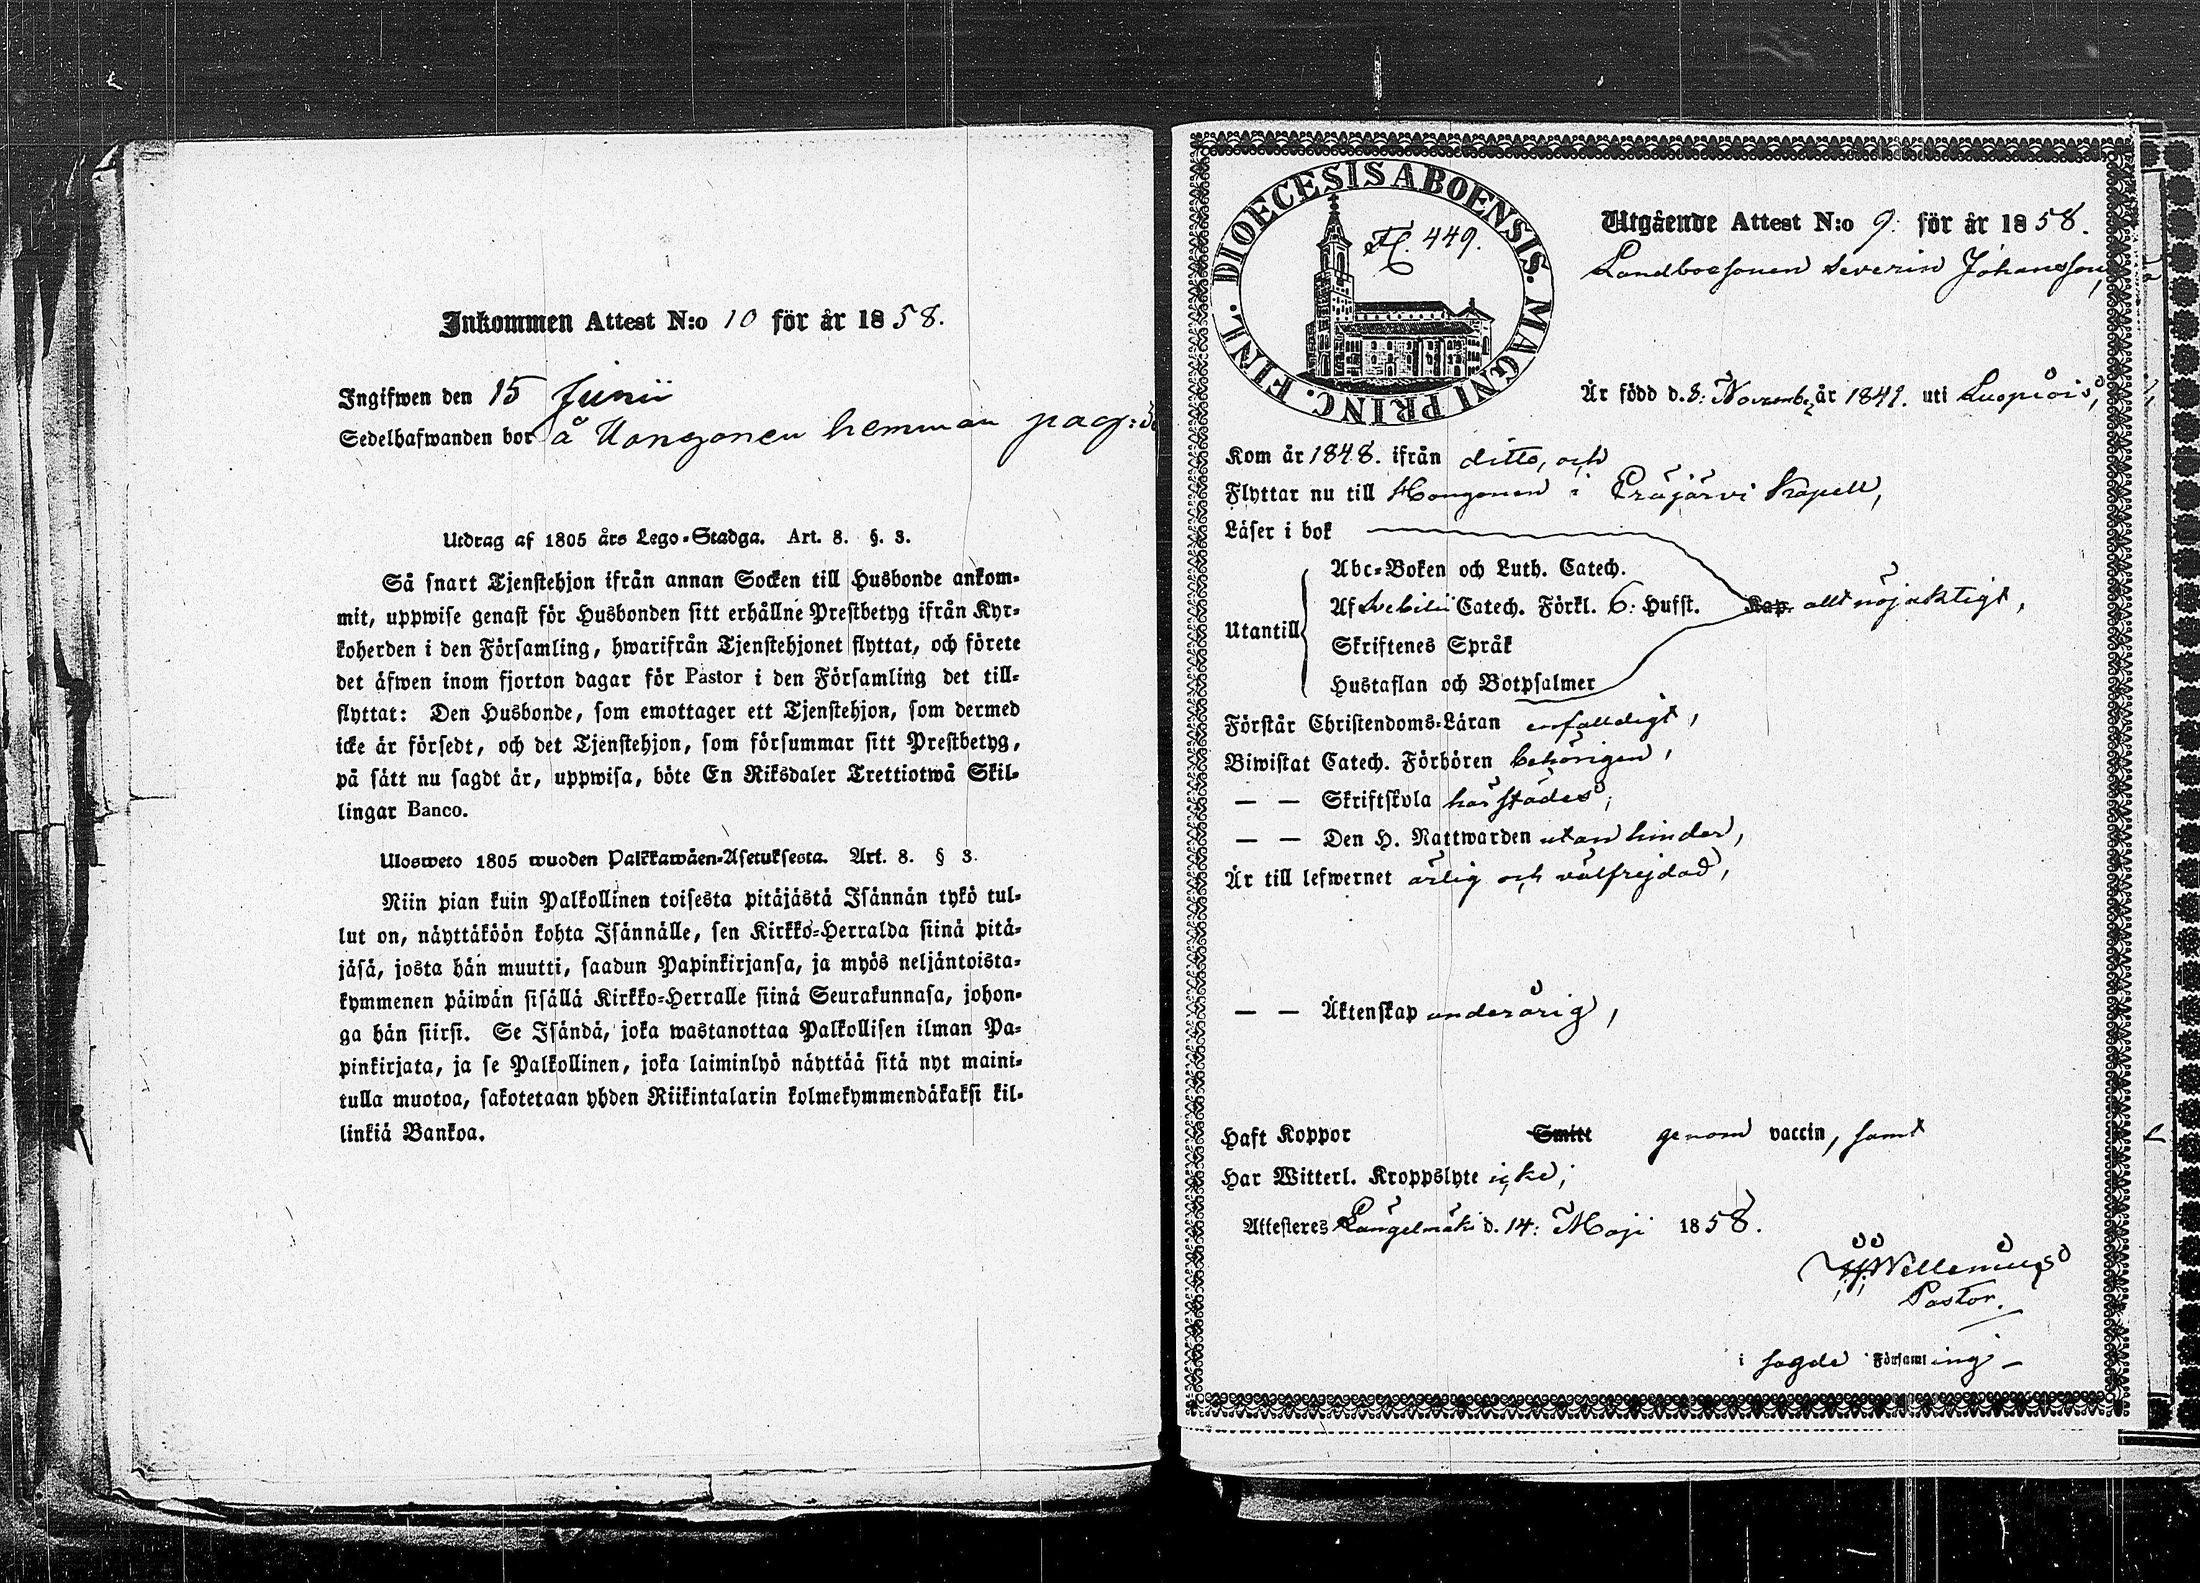 Inkommen Attest N:o 10 för år 1858.
Ingifwen den 15 Junii
Sedelhafwanden bor å Uongonen hemman pag:
Utdrag af 1805 års Lego-Stadga. Art. 8. §. 3.
Så snart Tjenstehjon ifrån annan Socken till Husbonde ankom-
mit, uppwise genast för Husbonden sitt erhållne Prestbetyg ifrån Kyr-
koherden i den Församling, hwarifrån Tjenstehjonet flyttat, och förete
det äfwen inom fjorton dagar för Pastor i den Församling det till-
flyttat: Den Husbonde, som emottager ett Tjenstehjon, som dermed
icke är försedt, och det Tjenstehjon, som försummar sitt Prestbetyg,
på sätt nu sagdt är, uppwisa, böte En Riksdaler Trettiotwå Skil-
lingar Banco.
Ulosweto 1805 wuoden Palkkawäen-Asetuksesta. Art. 8. § 3.
Niin pian kuin Palkollinen toisesta pitäjästä Isännän tykö tul-
lut on, näyttäköön kohta Isännälle, sen Kirkko-Herralda siinä pitä-
jäsä, josta hän muutti, saadun Papinkirjansa, ja myös neljäntoista-
kymmenen päiwän sisällä Kirkko-Herralle siinä Seurakunnasa, johon-
ga hän siirsi. Se Isändä, joka wastanottaa Palkollisen ilman Pa-
pinkirjata, ja se Palkollinen, joka laiminlyö näyttää sitä nyt maini-
tulla muotoa, sakotetaan yhden Riikintalarin kolmekymmendäkaksi kil-
linkiä Bankoa.
DIOECESIS ABOENSIS. MAGNI PRINC. FINL.
449.
Utgående Attest N:o 9. för år 1858.
Landboesonen Severin Johansson,
Är född d. 8: Novemb. år 1841. uti Luopiois,
Kom år 1848. ifrån ditto, och
Flyttar nu till Hongonen i Eräjärvi Kapell,
Läser i bok
Abc-Boken och Luth. Catech.
Utantill Af Svebilii Catech. Förkl. 6: Hufst. Kap. allt nöjaktigt,
Skriftenes Språk
Hustaflan och Botpsalmer
Förstår Christendoms-Läran enfalldigt,
Biwistat Catech. Förhören behörigen,
— — Skriftskola härstädes,
— — Den H. Nattwarden utan hinder,
Är till lefwernet ärlig och välfrejdad,
— — Äktenskap underårig,
Haft Koppor Smitt genom vaccin, samt
Har Witterl. Kroppslyte icke;
Attesteres Längelmäki d. 14: Maji 1858.
Wellenius
Pastor.
i sagde Församling